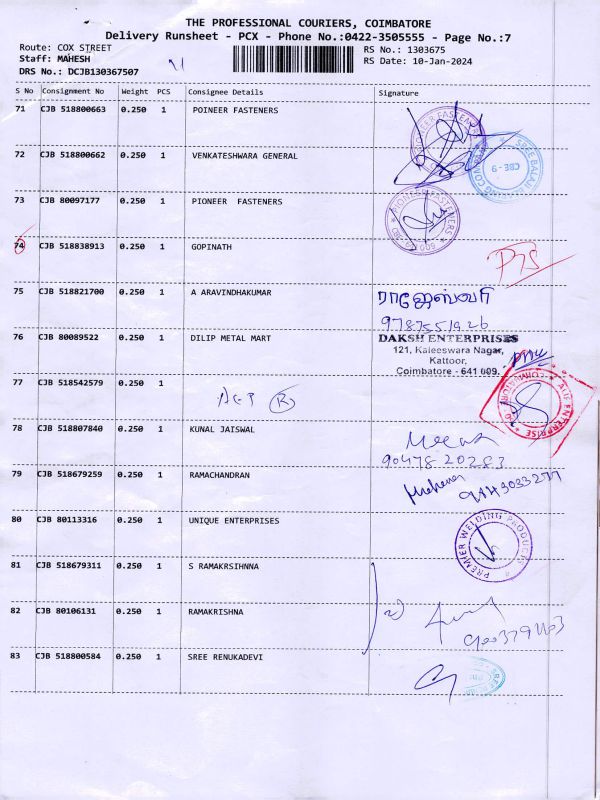 THE PROFESSIONAL COURIERS, COIMBATORE
Delivery Runsheet - PCX - Phone No.:0422-3505555 - Page No.:7
Route: COX STREET RS No.: 1303675
Staff: MAHESH RS Date: 10-Jan-2024
DRS No.: DCJB130367507
S No Consignment No Weight PCS Consignee Details Signature
71 CJB 518800663 0.250 1 POINEER FASTENERS
72 CJB 518800662 0.250 1 VENKATESHWARA GENERAL
73 CJB 80097177 0.250 1 PIONEER FASTENERS
PIONEER FASTENERS
74 CJB 518838913 0.250 1 GOPINATH
75 CJB 518821700 0.250 1 A ARAVINDHAKUMAR
ராஜேஸ்வரி
76 CJB 80089522 0.250 1 DILIP METAL MART
DAKSH ENTERPRISES
121, Kaleeswara Nagar,
Kattoor,
Coimbatore - 641 009.
77 CJB 518542579 0.250 1
ALIF ENTERPRISE
78 CJB 518807840 0.250 1 KUNAL JAISWAL
90478 20283
79 CJB 518679259 0.250 1 RAMACHANDRAN
80 CJB 80113316 0.250 1 UNIQUE ENTERPRISES
PREMIER WELDING PRODUCTS
81 CJB 518679311 0.250 1 S RAMAKRSIHNNA
82 CJB 80106131 0.250 1 RAMAKRISHNA
83 CJB 518800584 0.250 1 SREE RENUKADEVI